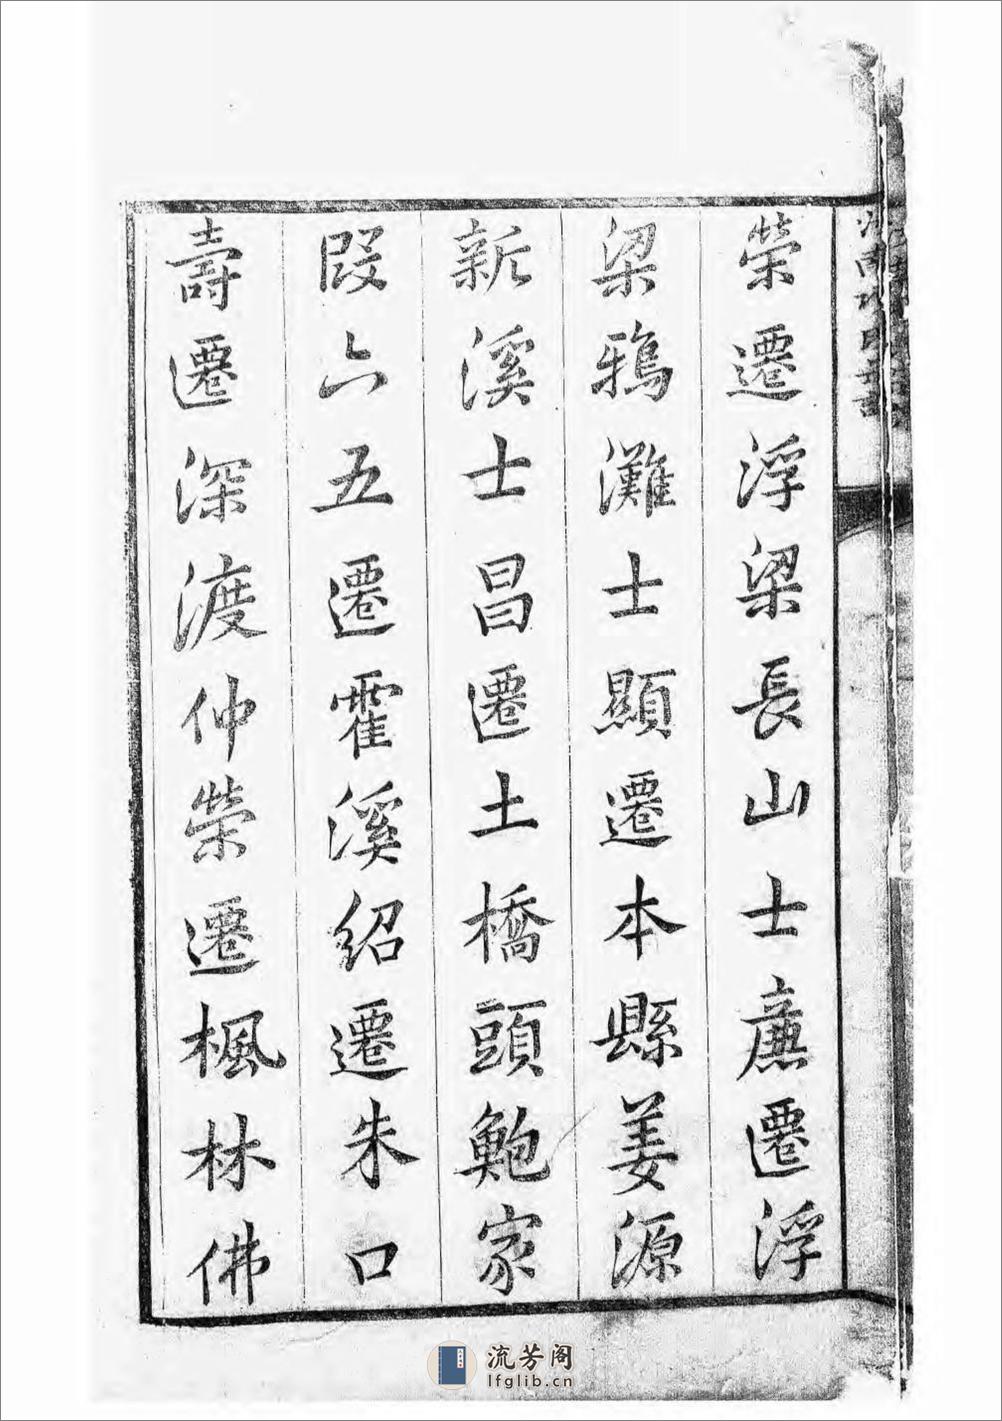 榮遷浮梁長山士廉遷浮
梁鴉灘士顯遷本縣姜源
新溪士昌遷土橋頭鮑家
段六五遷霍溪紹遷朱口
壽遷深渡仲榮遷楓林佛
流芳阁
lfglib.cn